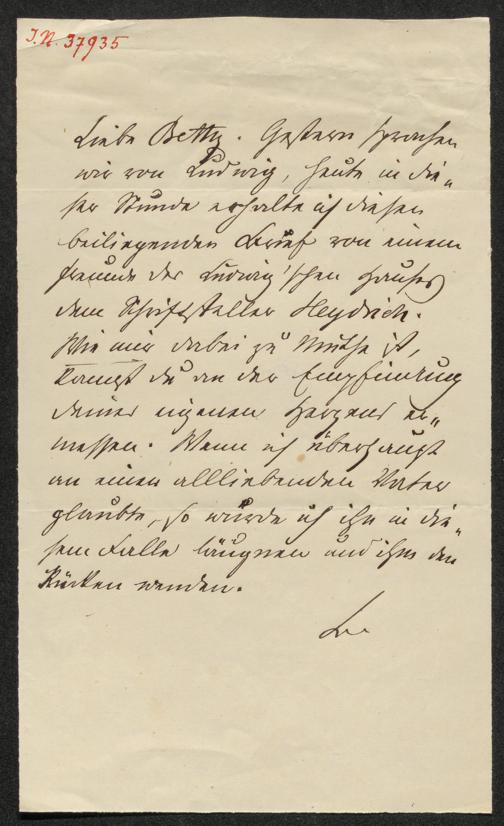 I.N. 37935
Liebe Betty. Gestern sprachen
wir von Ludwig, heute in die„
ser Stunde erhalte ich diesen
beiliegenden Brief von einem
Freunde des Ludwig'schen Hauses
dem Schriftsteller Heydrich.
Wie mir dabei zu Muthe ist,
kannst du an der Empfindung
deines eigenen Herzens er„
messen. Wenn ich überhaupt
an einen allliebenden Vater
glaubte, so würde ich ihn in die„
sem Falle läugnen und ihm den
Rücken wenden.